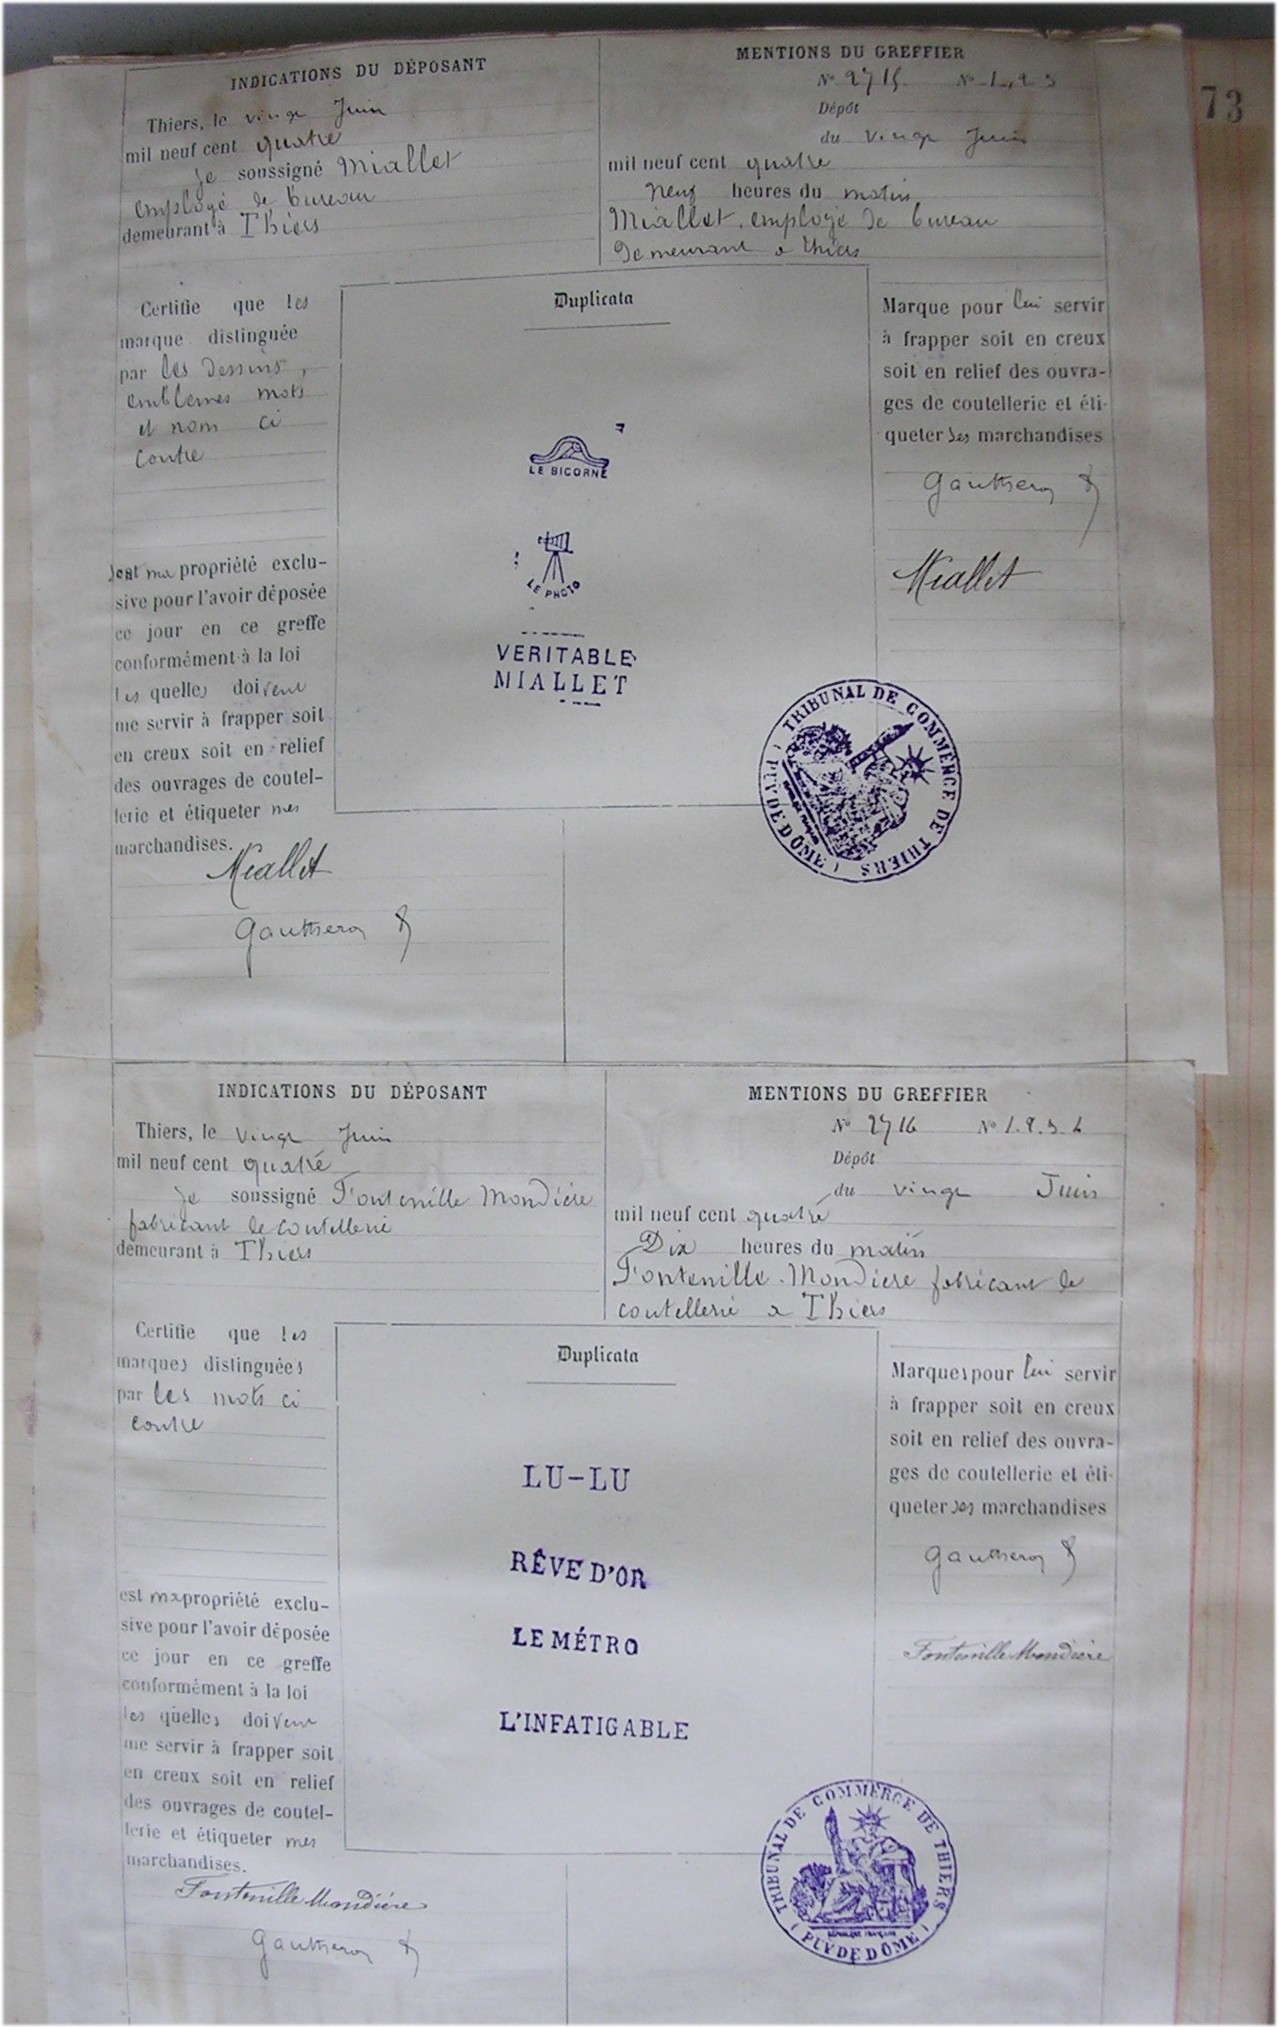 73
INDICATIONS DU DÉPOSANT
Thiers, le vingt Juin
mil neuf cent quatre
je soussigné Miallet
employé de bureau
demeurant à Thiers
MENTIONS DU GREFFIER
No 2715 No 1, 2 3
Dépôt
du vingt Juin
mil neuf cent quatre
neuf heures du matin
Miallet, employé de bureau
demeurant a thiers
Certifie que les
marque distinguée
par les dessins,
emblemes mots
et nom ci
contre
sont ma propriété exclu-
sive pour l'avoir déposée
ce jour en ce greffe
conformément à la loi
les quelles doivent
me servir à frapper soit
en creux soit en relief
des ouvrages de coutel-
lerie et étiqueter mes
marchandises.
Miallet
Gauttieron
Duplicata
LE BICORNE
LE PHOTO
VERITABLE
MIALLET
Marque pour lui servir
à frapper soit en creux
soit en relief des ouvra-
ges de coutellerie et éti-
queter ses marchandises
Gauttieron
Miallet
TRIBUNAL DE COMMERCE DE THIERS
( PUY DE DÔME )
INDICATIONS DU DÉPOSANT
Thiers, le vingt Juin
mil neuf cent quatre
je soussigné Fontenille Mondière
fabricant de coutellerie
demeurant à Thiers
MENTIONS DU GREFFIER
No 2716 No 1. 2. 3. 4
Dépôt
du vingt Juin
mil neuf cent quatre
Dix heures du matin
Fontenille-Mondiere fabricant de
coutellerie a Thiers
Certifie que les
marques distinguées
par les mots ci
contre
est ma propriété exclu-
sive pour l'avoir déposée
ce jour en ce greffe
conformément à la loi
les quelles doivent
me servir à frapper soit
en creux soit en relief
des ouvrages de coutel-
lerie et étiqueter mes
marchandises.
Fontenille Mondière
Gauttieron
Duplicata
LU-LU
RÊVE D'OR
LE MÉTRO
L'INFATIGABLE
Marques pour lui servir
à frapper soit en creux
soit en relief des ouvra-
ges de coutellerie et éti-
queter ses marchandises
Gauttieron
Fontenille Mondière
TRIBUNAL DE COMMERCE DE THIERS
RÉPUBLIQUE FRANÇAISE
( PUY DE DÔME )